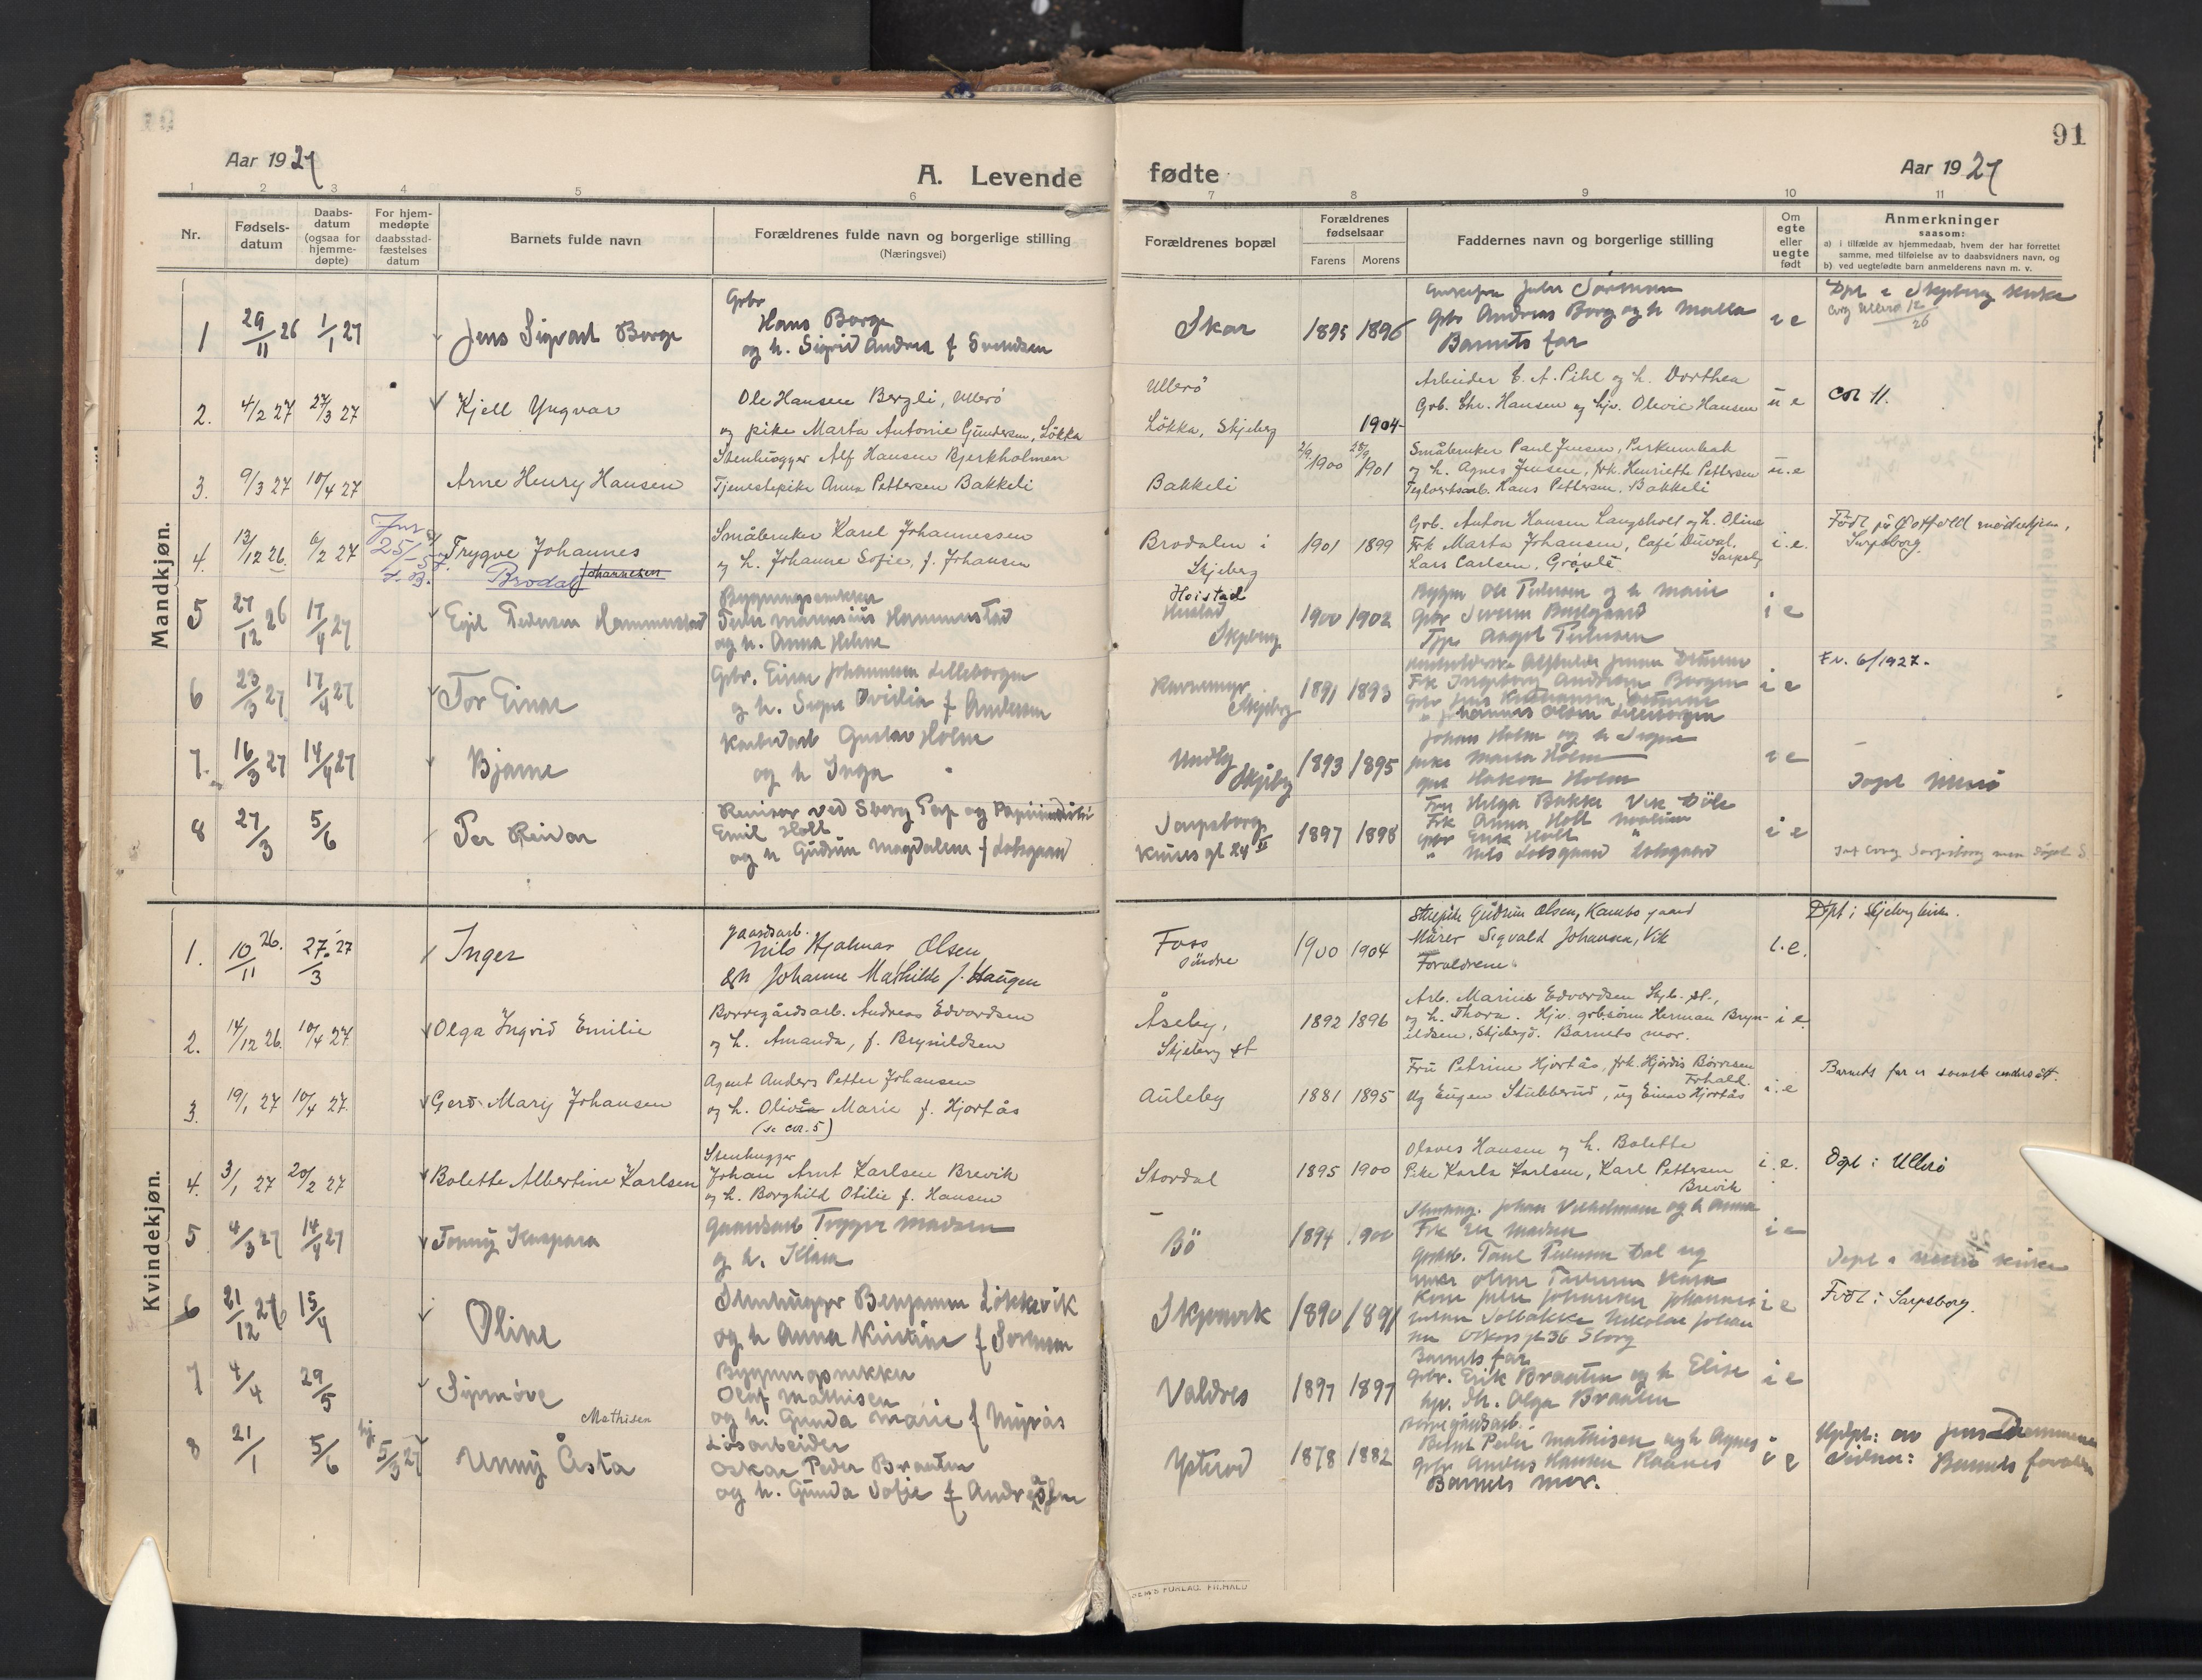 91
Aar 1927
A. Levende fødte
Aar 1927
1 2 3 4 5 6 7 8 9 10 11
Nr.
Fødsels-
datum
Daabs-
datum
(ogsaa for
hjemme-
døpte)
For hjem-
medøpte
daabsstad-
fæstelses
datum
Barnets fulde navn
Forældrenes fulde navn og borgerlige stilling
(Næringsvei)
Forældrenes bopæl
Forældrenes
fødselsaar
Farens Morens
Faddernes navn og borgerlige stilling
Om
egte
eller
uegte
født
Anmerkninger
saasom:
a) i tilfælde av hjemmedaab, hvem der har forrettet
samme, med tilføielse av to daabsvidners navn, og
b) ved uegtefødte barn anmelderens navn m. v.
Mandkjøn.
1 29/11 26 1/1 27 Jens Sigvart Borge
Grbr
Hans Borge
og h. Sigrid Andrea f Svendsen
Skar 1895 1896
Grbr Andreas Borg og h Malla
Barnets far
i e
Døpt i Skjeberg kirke
2. 4/2 27 27/3 27 Kjell Yngvar
Ole Hansen Bergli, Ullerö
og pike Marta Antonie Gundersen, Lökka
Ullerö
Lökka, Skjeberg 1904
Arbeider C. A. Pihl og h. Dorthea
Grb. Chr. Hansen og hjv. Olivie Hansen
u e
cor 11.
3. 9/3 27 10/4 27 Arne Henry Hansen
Stenhugger Alf Hansen Bjerkholmen
Tjenestepike Anna Pettersen Bakkeli
Bakkeli 1900 1901
Småbruker Paul Jensen,
og h. Agnes Jensen, frk. Henriette Pettersen
Teglverksarb. Hans Pettersen. Bakkeli
u.e
4. 13/12 26. 6/2 27 Trygve Johannes
Brodal Johannesen
Småbruker Karel Johannessen
og h. Johanne Sofie, f. Johansen
Brodalen i
Skjeberg
1901 1899
Grb. Anton Hansen Langsholt og h. Oline
Frk Marta Johansen, Café Duval,
Sarpsbg
Lars Carlsen,
i.e.
Född på Østfold mødrehjem,
Sarpsborg.
5 27/12 26 17/4 27 Egil Pedersen Hammerstad
Bygningssnekker
Peder Marensius Hammerstad
og h. Anna Helene
Hoistad
Skjeberg
1900 1902
Bygm Ole Pedersen og h Marie
i e
6 23/3 27 17/4 27 Tor Einar
Grbr. Einar Johannesen Lilleborgen
og h. Signe Ovidia f Andersen
Skjeberg
1891 1893
Frk Ingeborg Andersen Borgen
Johannes Olsen Lilleborgen
i e
Fv. 6/1927.
7. 16/3 27 14/4 27 Bjarne
Gustav Holm
og h Inga
Undby
Skjebg
1893 1895
Johan Holm og h Signe
pike Marta Holm
Hakon Holm
i e
Døpt Ullerö
8 27/3 5/6 Per Reidar
Revisor ved Sborg Pap og Papirindustri
Emil Holt
og h Gudrun Magdalene f Lobsgaard
Sarpsborg
Kruses gt 24 II
1897 1898
Fru Helga Bakke
Frk Anna Holt
Grbr Erik Holt
" Nils Lobsgaard Lobsgaard
i e
Kvindekjøn.
1. 10/11 26. 27./3 27 Inger
gaardsarb.
Nils Hjalmar Olsen
& h Johanne Mathilde f. Haugen
Foss
søndre
1900 1904
Gudrun Olsen, Kambo gaard
Murer Sigvald Johansen, Vik
Foreldrene.
i.e.
Døpt i Skjeberg kirke.
2. 14/12 26. 10/4 27. Olga Ingrid Emilie
Borregårdsarb. Andreas Edvardsen
og h. Amanda, f. Brynildsen
Åseby,
Skjeberg st
1892 1896
Arb. Marius Edvardsen Skjb. st.,
og h. Thora. Hjv. grb.sönn Herman Bryn-
ildsen, Skjebergd. Barnets mor.
i e.
3. 19/1 27 10/4 27. Gerd Mary Johansen
Agent Anders Petter Johansen
og h. Olivia Marie f. Hjortås
(se cor. 5)
Auleby 1881 1895
Fru Petrine Hjortås, frk. Hjördis Börresen
Frhald.
Ug Eugen Stubberud, ug Einar Hjortås
i.e
Barnets far er svensk undersått.
4. 3/1 27 20/2 27 Bolette Albertine Karlsen
Stenhugger
Johan Arnt Karlsen Brevik
og h. Borghild Otilie f. Hansen
Stordal 1895 1900
Olaves Hansen og h. Bolette
Pike Karla Karlsen, Karl Pettersen
Brevik
i.e.
Døpt i Ullerö
5 4/3 27 14/4 27 Jonny Kaspara
Gaardsarb Trygve Madsen
og h. Klara
Bö 1894 1900
Johan Vilhelmsen og h Anna
Frk Madsen
i e
Døpt i Ullerö kirke
6 21/12 26 15/4 Oline
Stenhugger Benjamin Lökkevik
og h Anna Kristine f Sörensen
Skjærvik 1890 1891
i e
Född i Sarpsborg.
7 4/4 29/5 Synnöve
Mathisen
Bygningssnekker
Olaf Mathisen
og h. Gunda Marie f Myrås
Valdres 1897 1897
Barnets far
Grbr. Erik Braaten og h Elise
Olga Braaten
i e
8 21/1 5/6 hj. 5/3 27 Unny Åsta
Løsarbeider
Oskar Peder Braaten
og h. Gunda Sofie f Andreassen
Ysterod 1878 1882
Borregårdsarb.
Bernt Peder Mathisen og h Agnes
Grbr Anders Hansen Raanes
Barnets mor.
i e
Hjdpt: av
Vidner: Barnets foreldre